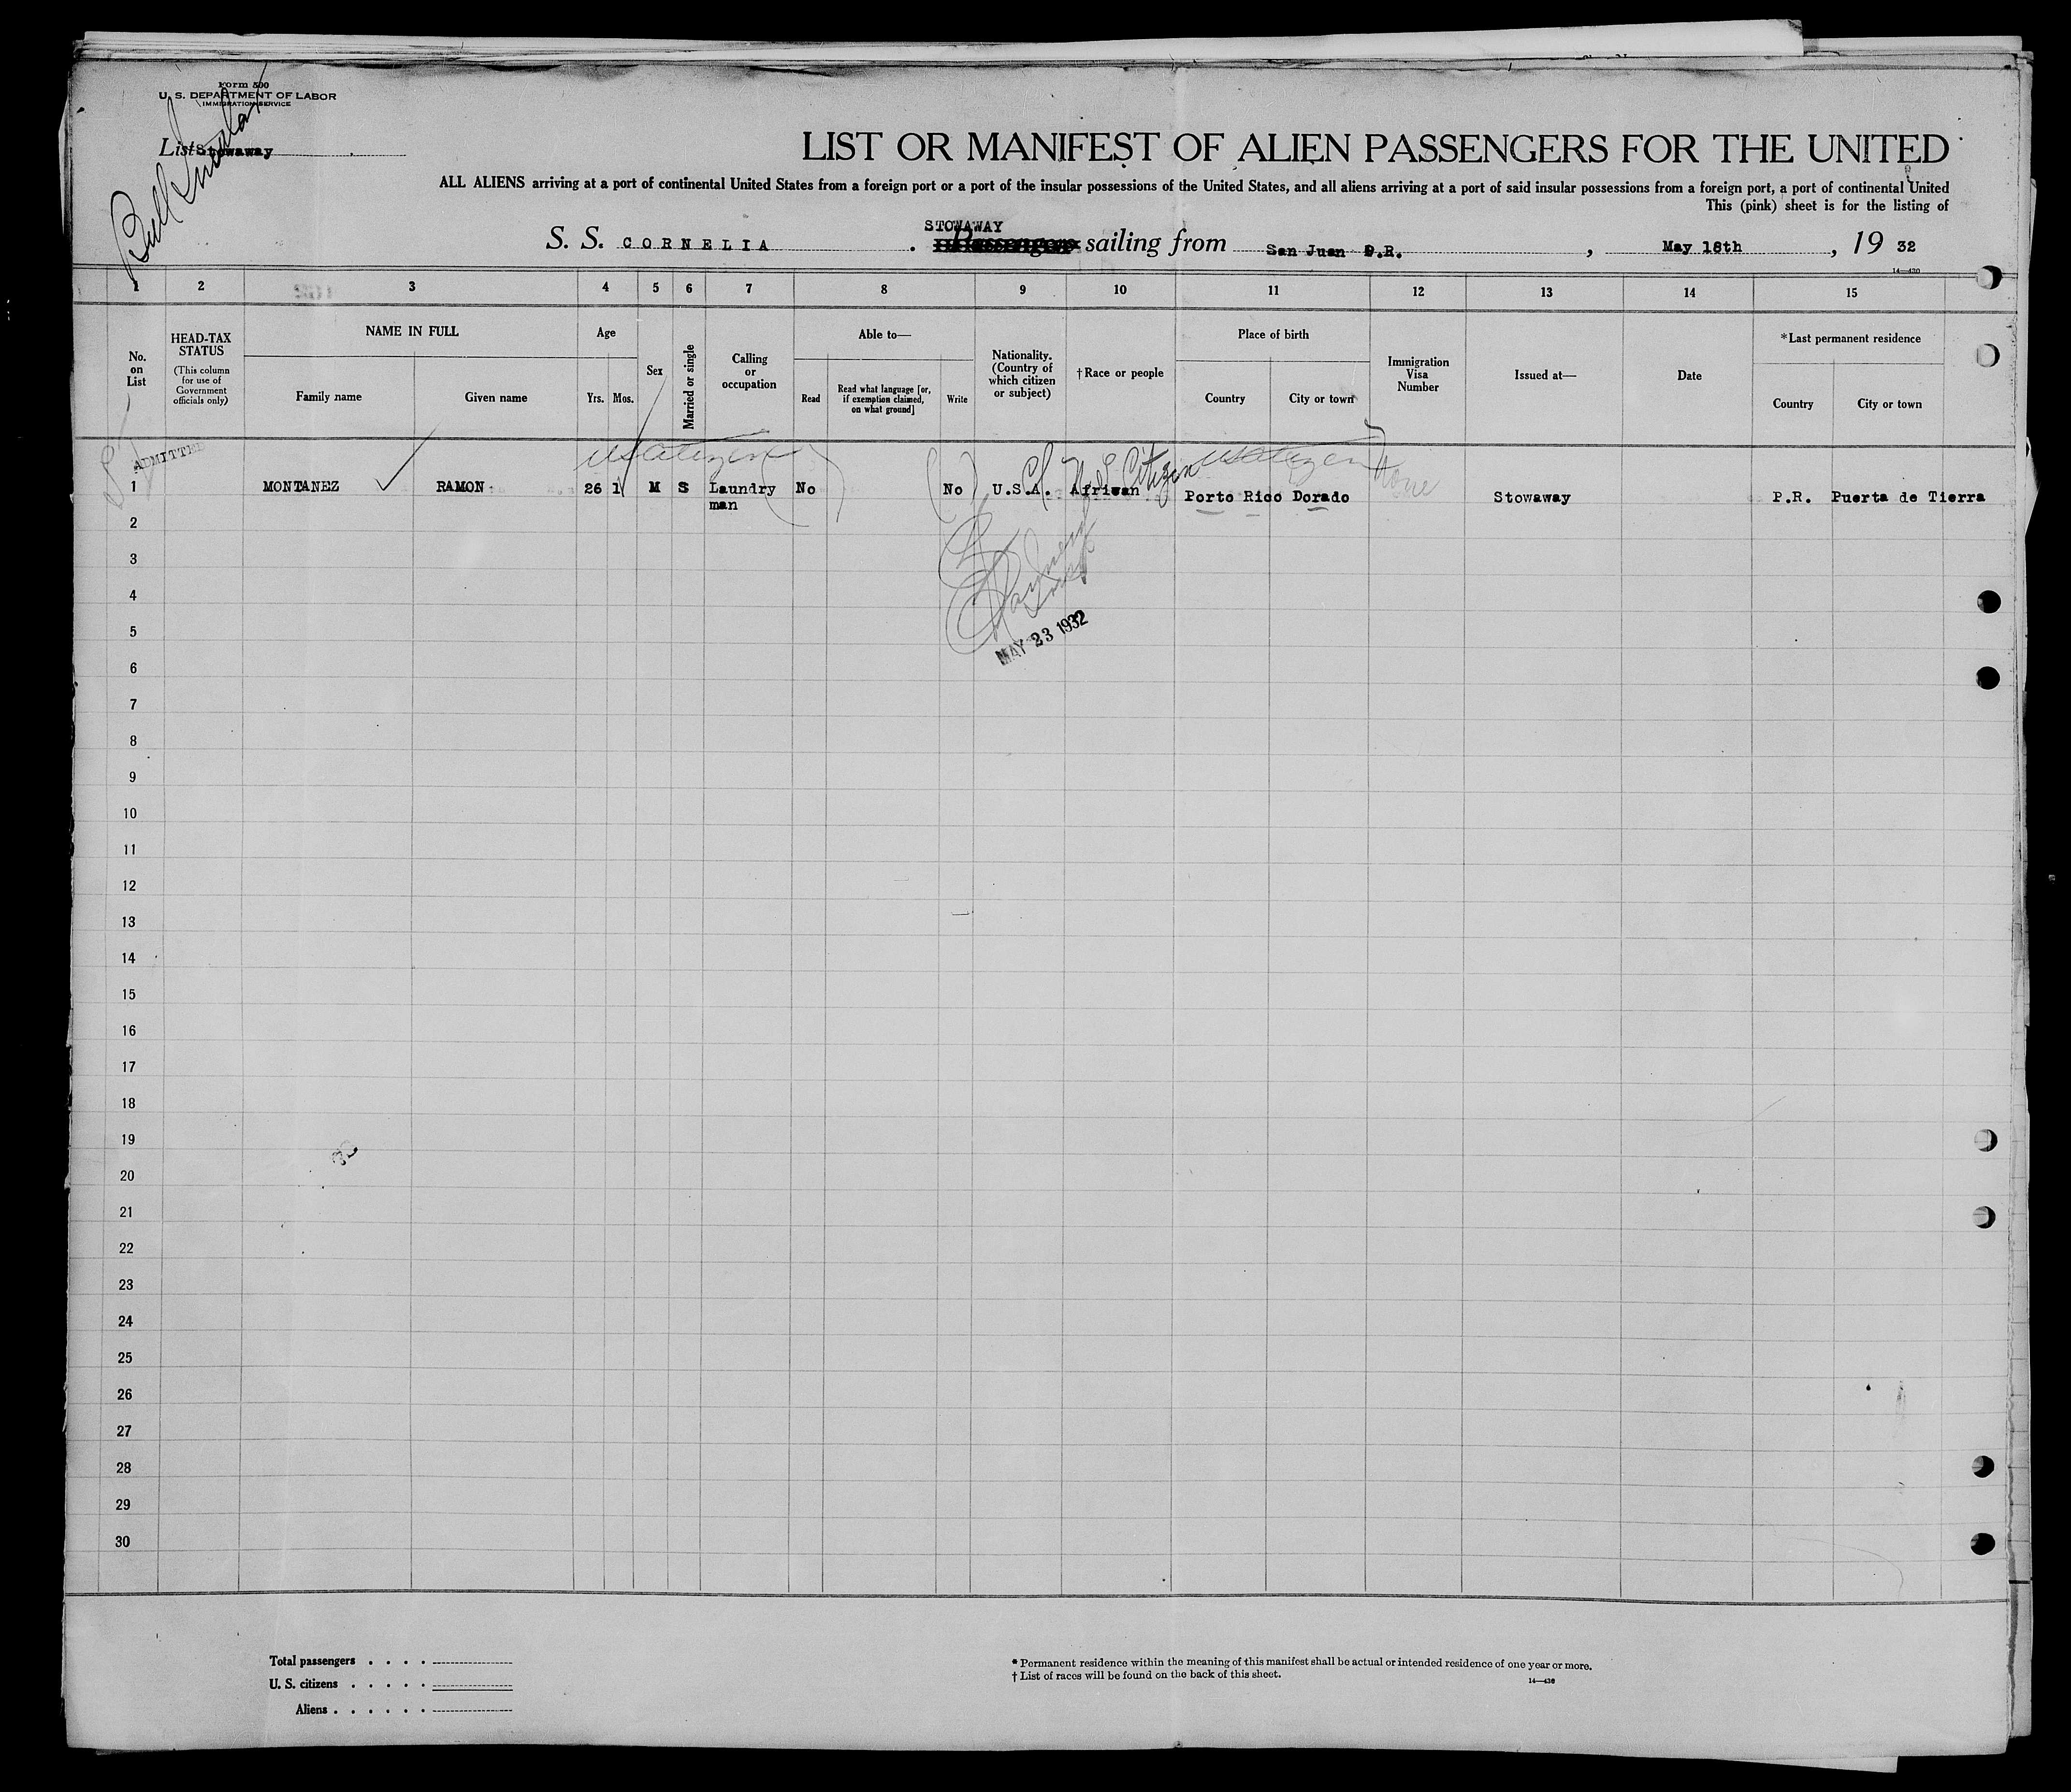 Form 500
U. S. DEPARTMENT OF LABOR
IMMIGRATION SERVICE
List Stowaway
Bull Insular
LIST OR MANIFEST OF ALIEN PASSENGERS FOR THE UNITED
ALL ALIENS arriving at a port of continental United States from a foreign port or a port of the insular possessions of the United States, and all aliens arriving at a port of said insular possessions from a foreign port, a port of continental United
This (pink) sheet is for the listing of
STOWAWAY
S. S. CORNELIA . Passengers sailing from San Juan P.R. , May 18th , 19 32
14—430
1 2 3 4 5 6 7 8 9 10 11 12 13 14 15
No. on List
HEAD-TAX STATUS
(This column for use of Government officials only)
NAME IN FULL
Family name Given name
Age
Yrs. Mos.
Sex
Married or single
Calling or occupation
Able to—
Read
Read what language [or, if exemption claimed, on what ground]
Write
Nationality. (Country of which citizen or subject)
†Race or people
Place of birth
Country City or town
Immigration Visa Number
Issued at—
Date
*Last permanent residence
Country City or town
ADMITTED
US Citizen
U.S. Citizen
US Citizen
None
1 MONTANEZ RAMON 26 1 M S Laundry man No No U.S.A. African Porto Rico Dorado Stowaway P.R. Puerta de Tierra
2
3
4
5
MAY 23 1932
6
7
8
9
10
11
12
13
14
15
16
17
18
19
20
21
22
23
24
25
26
27
28
29
30
Total passengers . . . .
U. S. citizens . . . . .
Aliens . . . . . .
* Permanent residence within the meaning of this manifest shall be actual or intended residence of one year or more.
† List of races will be found on the back of this sheet.
14—430